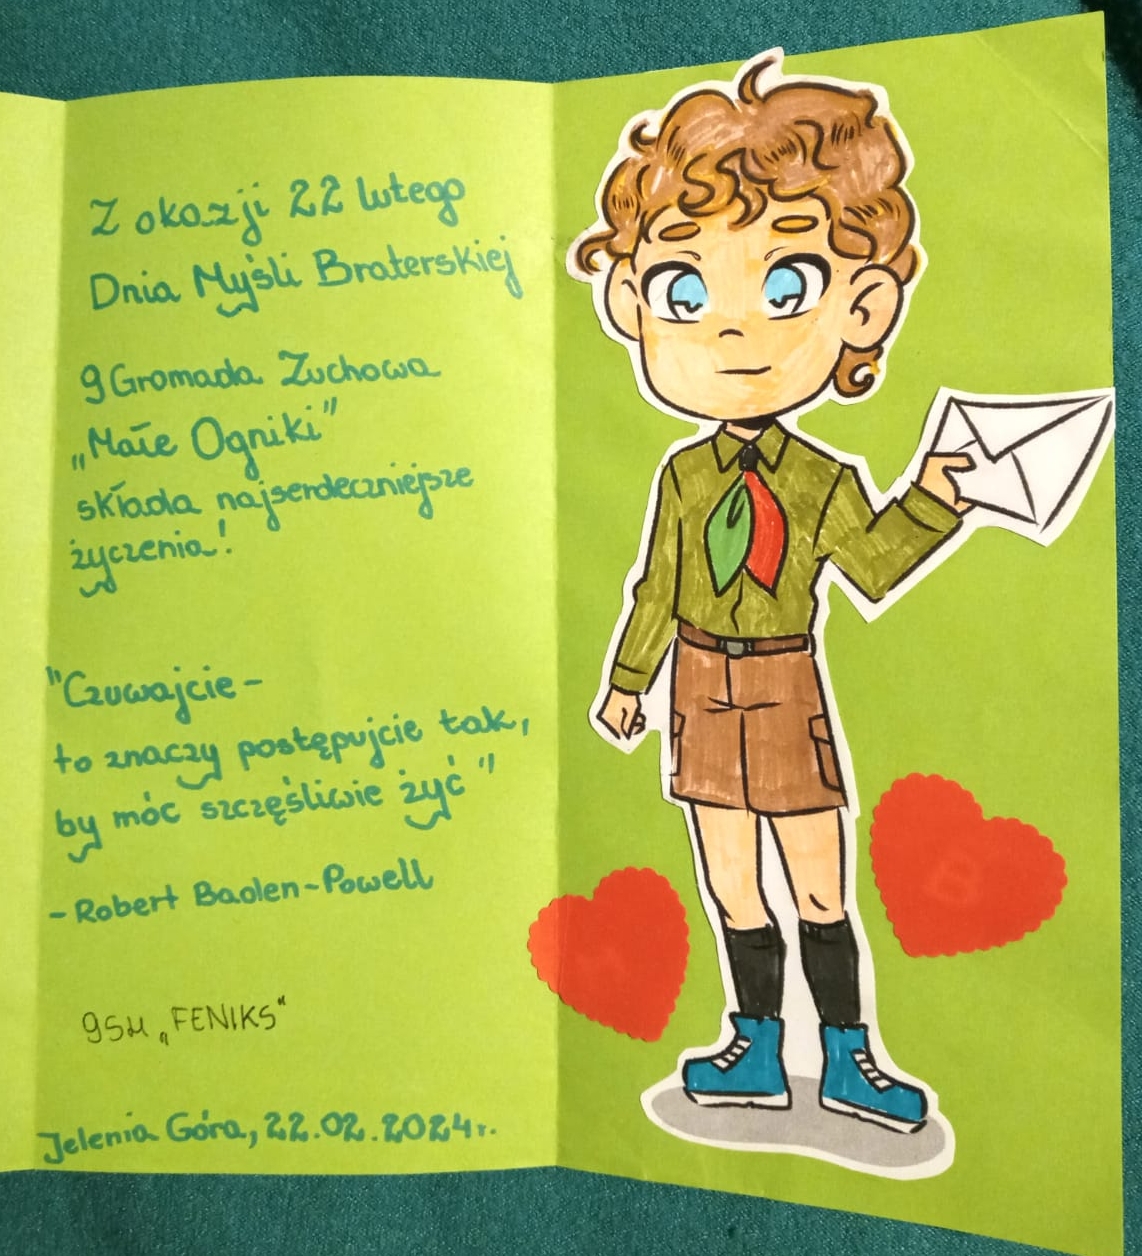 Z okazji 22 lutego
Dnia Myśli Braterskiej
9 Gromada Zuchowa
„Małe Ogniki”
składa najserdeczniejsze
życzenia!
"Czuwajcie -
to znaczy postępujcie tak,
by móc szczęśliwie żyć"
- Robert Baden-Powell
9SH „FENIKS"
Jelenia Góra, 22.02.2024r.